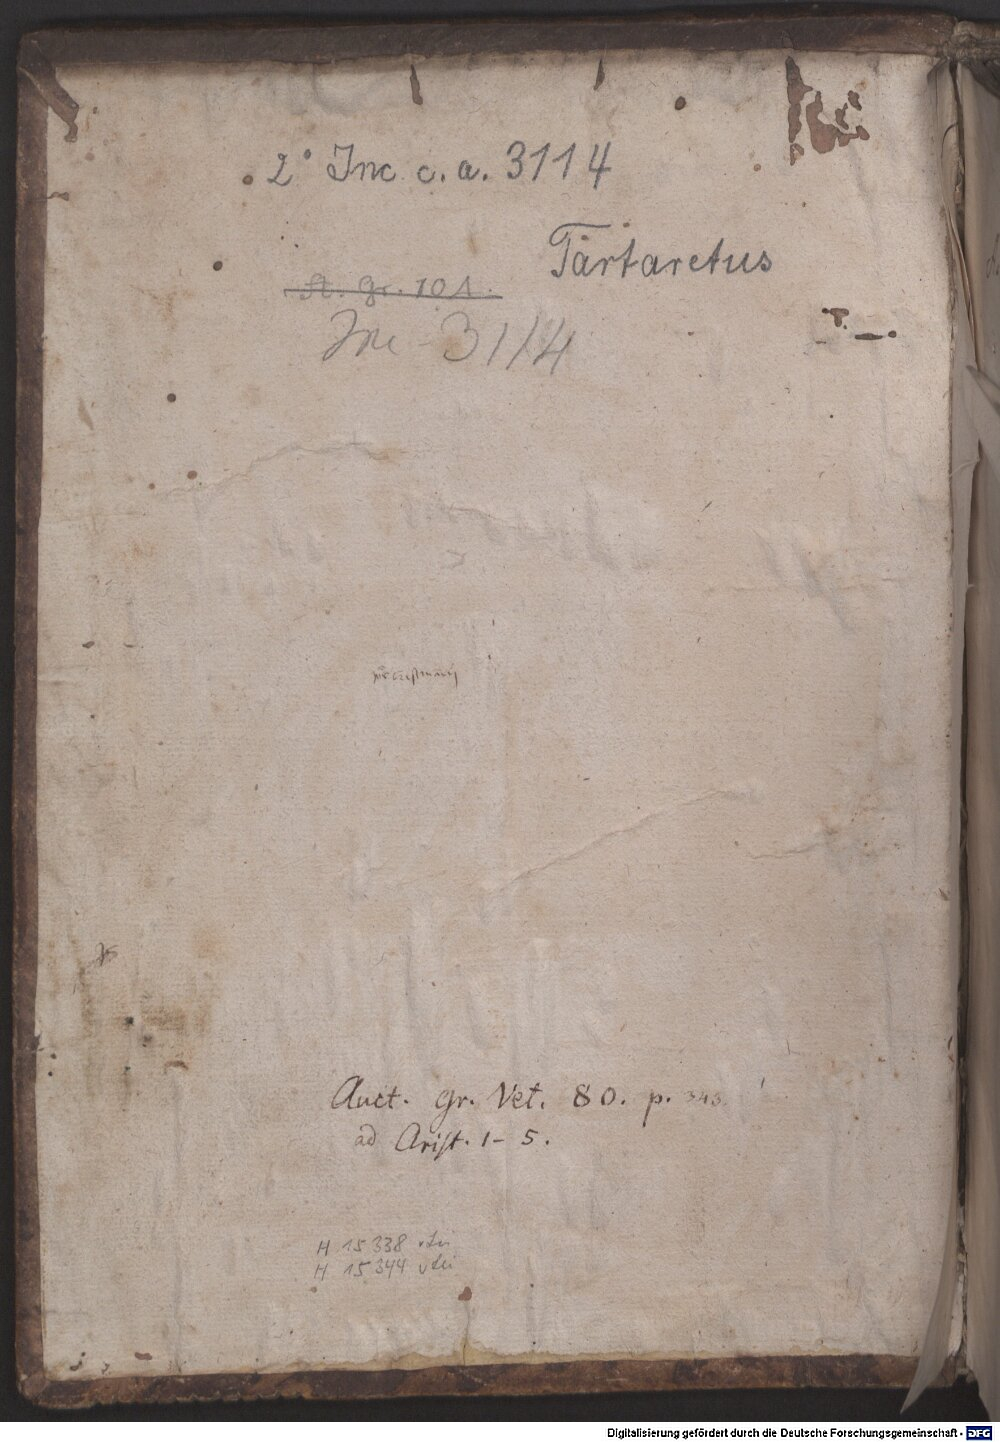 2° Inc c. a. 3114
Tartaretus
A. gr. 101.
Inc 3114
Auct. gr. Vet. 80. p. 343.
ad Arist. 1-5.
H 15338
H 15344
Digitalisierung gefördert durch die Deutsche Forschungsgemeinschaft - DFG